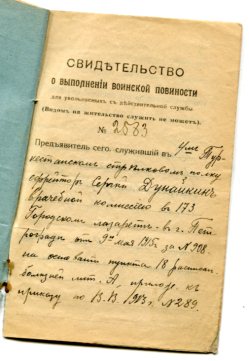 СВИДѢТЕЛЬСТВО
о выполненіи воинской повинности
для увольняемыхъ съ дѣйствительной службы
(Видомъ на жительство служить не можетъ).
№ 2583
Предъявитель сего, служившій въ 4мъ Тур-
кестанскомъ стрѣлковомъ полку
ефрейторъ
Врачебной комиссіею въ 173
Городскомъ лазаретѣ въ г. Пет-
роградѣ отъ 9го мая 1915 г. за № 908
на основаніи пункта 18 расписан.
болѣзней лит. А, прилож. къ
приказу по В.В. 1913 г. № 289.